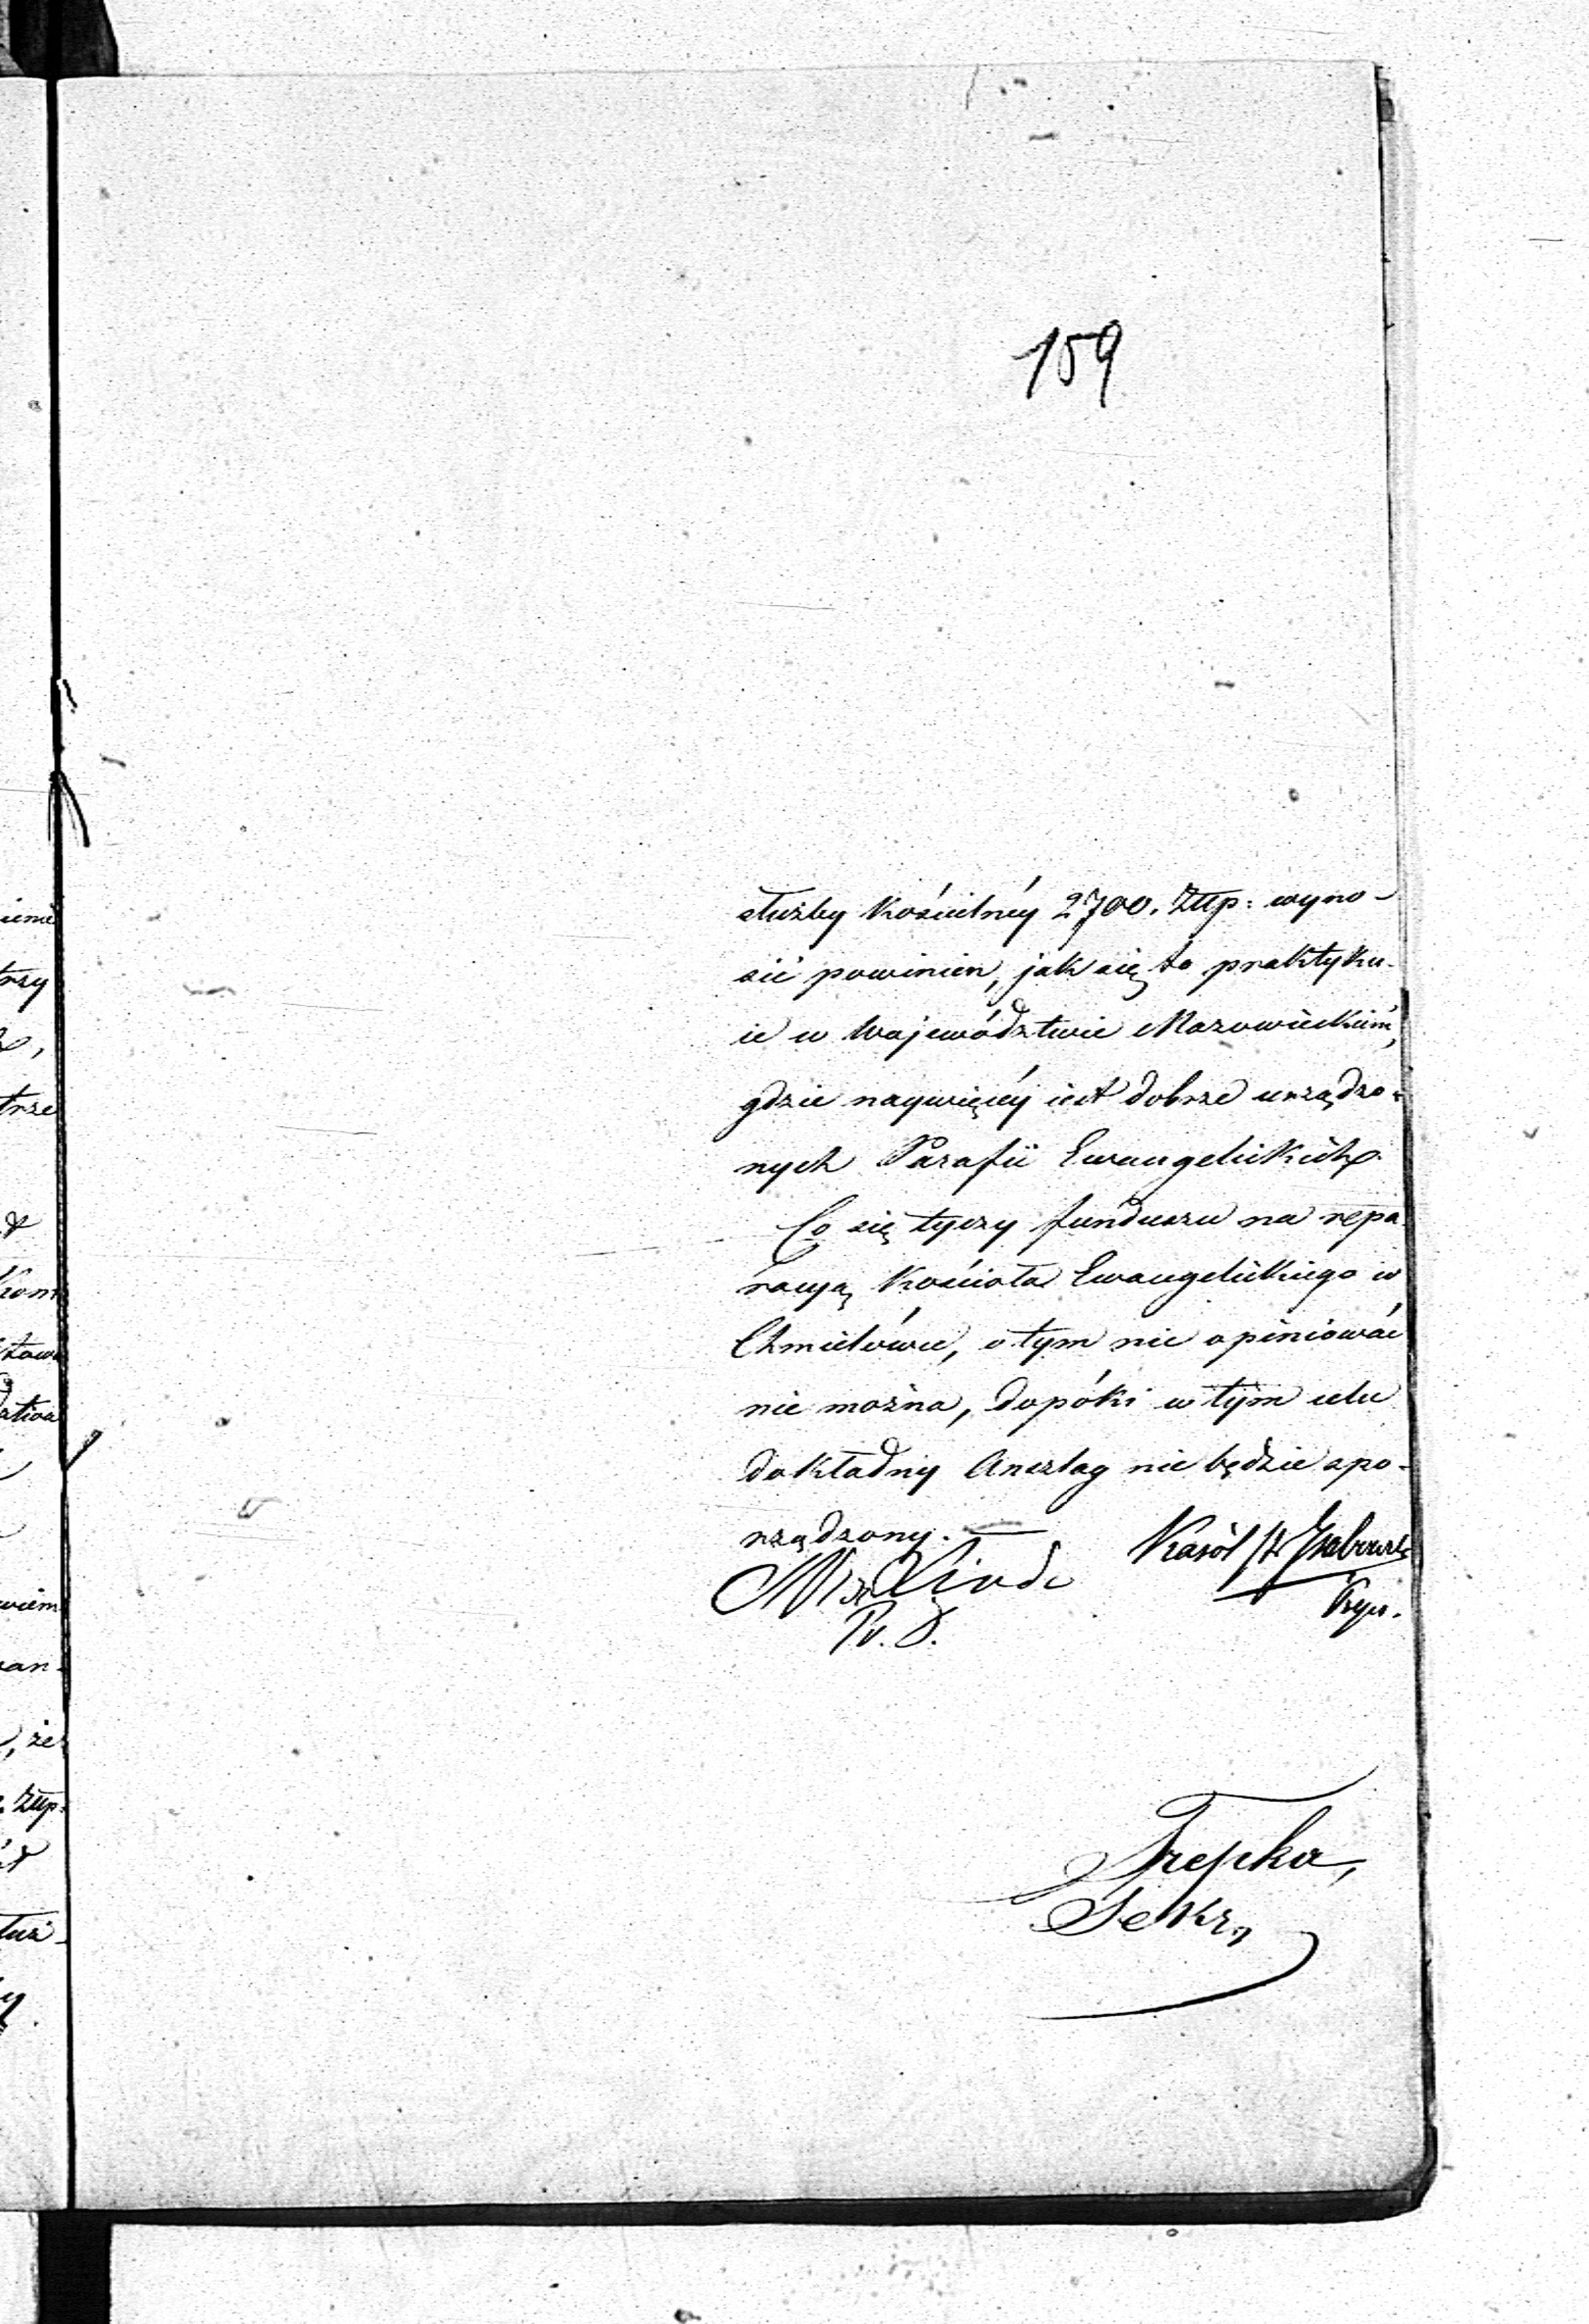 159
służby Kościelnéy 2700. Złlp: wyno-
sić powinien, jak się to praktyku-
ie w Województwie Mazowieckiém,
gdzie naywięcéy iest dobrze urządzo-
nych Parafii Ewangelickich.
Co się tyczy funduszu na repa
racyą Kościoła Ewangelickiego w
Chmielówie, o tym nic opiniować
nie można, dopóki w tym celu
dokładny Anszlag nie będzie spo-
rządzony.
Linde
Karól
Pr. S.
Trepka,
Sekr.